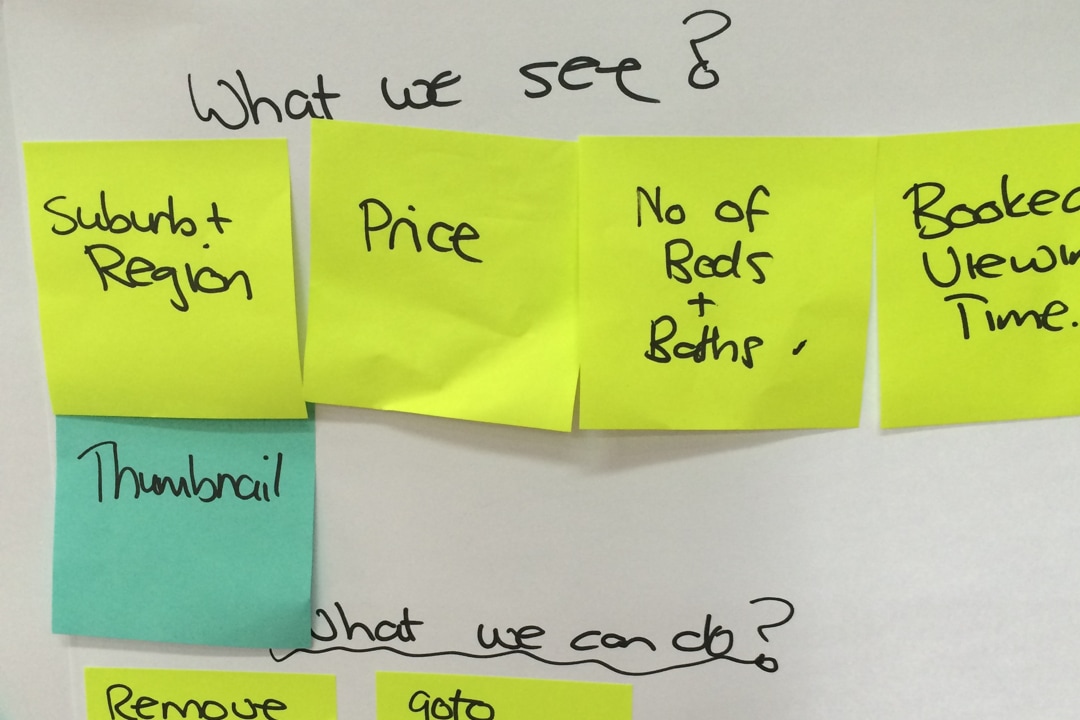 What we see?
Suburb +
Region
Price
No of
Beds
+
Baths
Booked
Time.
Thumbnail
What we can do?
Remove
goto